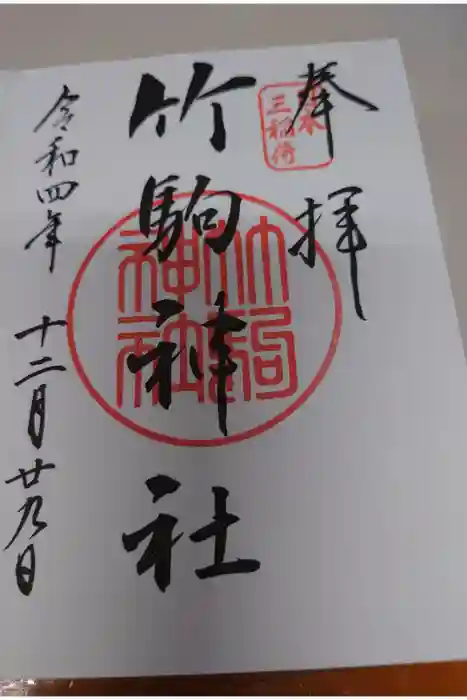 奉拝
日本三稲荷
竹駒神社
竹駒神社
令和四年 十二月廿九日